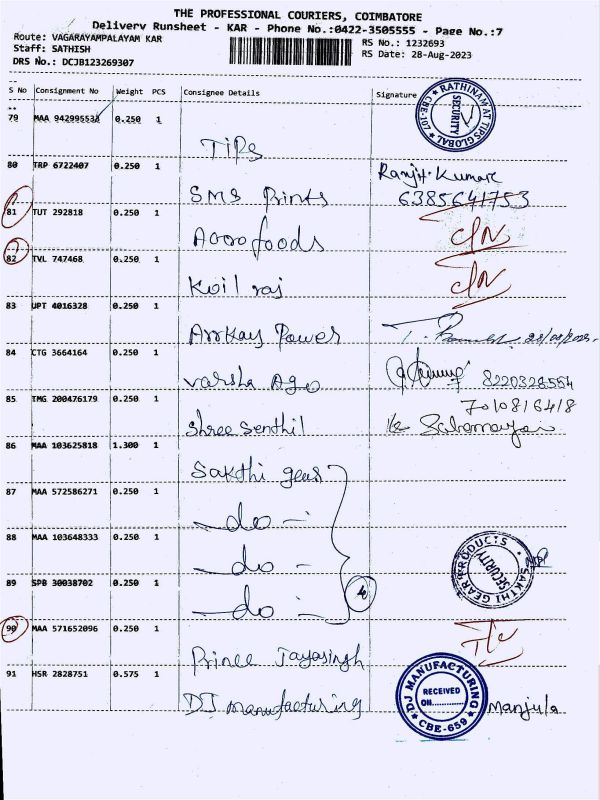 THE PROFESSIONAL COURIERS, COIMBATORE
Delivery Runsheet - KAR - Phone No.:0422-3505555 - Page No.:7
Route: VAGARAYAMPALAYAM KAR
RS No.: 1232693
Staff: SATHISH
RS Date: 28-Aug-2023
DRS No.: DCJB123269307
S No Consignment No Weight PCS Consignee Details Signature
79 MAA 942995533 0.250 1
RATHINAM AT TIPS GLOBAL
SECURITY
CBE-107
TIPS
80 TRP 6722407 0.250 1
Ranjit Kumar
SMS Prints 6385641753
81 TUT 292818 0.250 1
Agro foods C/N
82 TVL 747468 0.250 1
Koil raj C/N
83 UPT 4016328 0.250 1
Arrkay Power
84 CTG 3664164 0.250 1
Varsha Ago 8220326554
85 TMG 200476179 0.250 1
7010816418
Shree Senthil
86 MAA 103625818 1.300 1
Sakthi gear
87 MAA 572586271 0.250 1
- do -
88 MAA 103648333 0.250 1
- do -
SAKTHI GEAR PRODUCTS
SECURITY
89 SPB 30038702 0.250 1
- do - 4
90 MAA 571652096 0.250 1
Prince Jayasingh
91 HSR 2828751 0.575 1
DJ manufacturing
DJ MANUFACTURING
RECEIVED
ON.............
CBE-659
Manjula